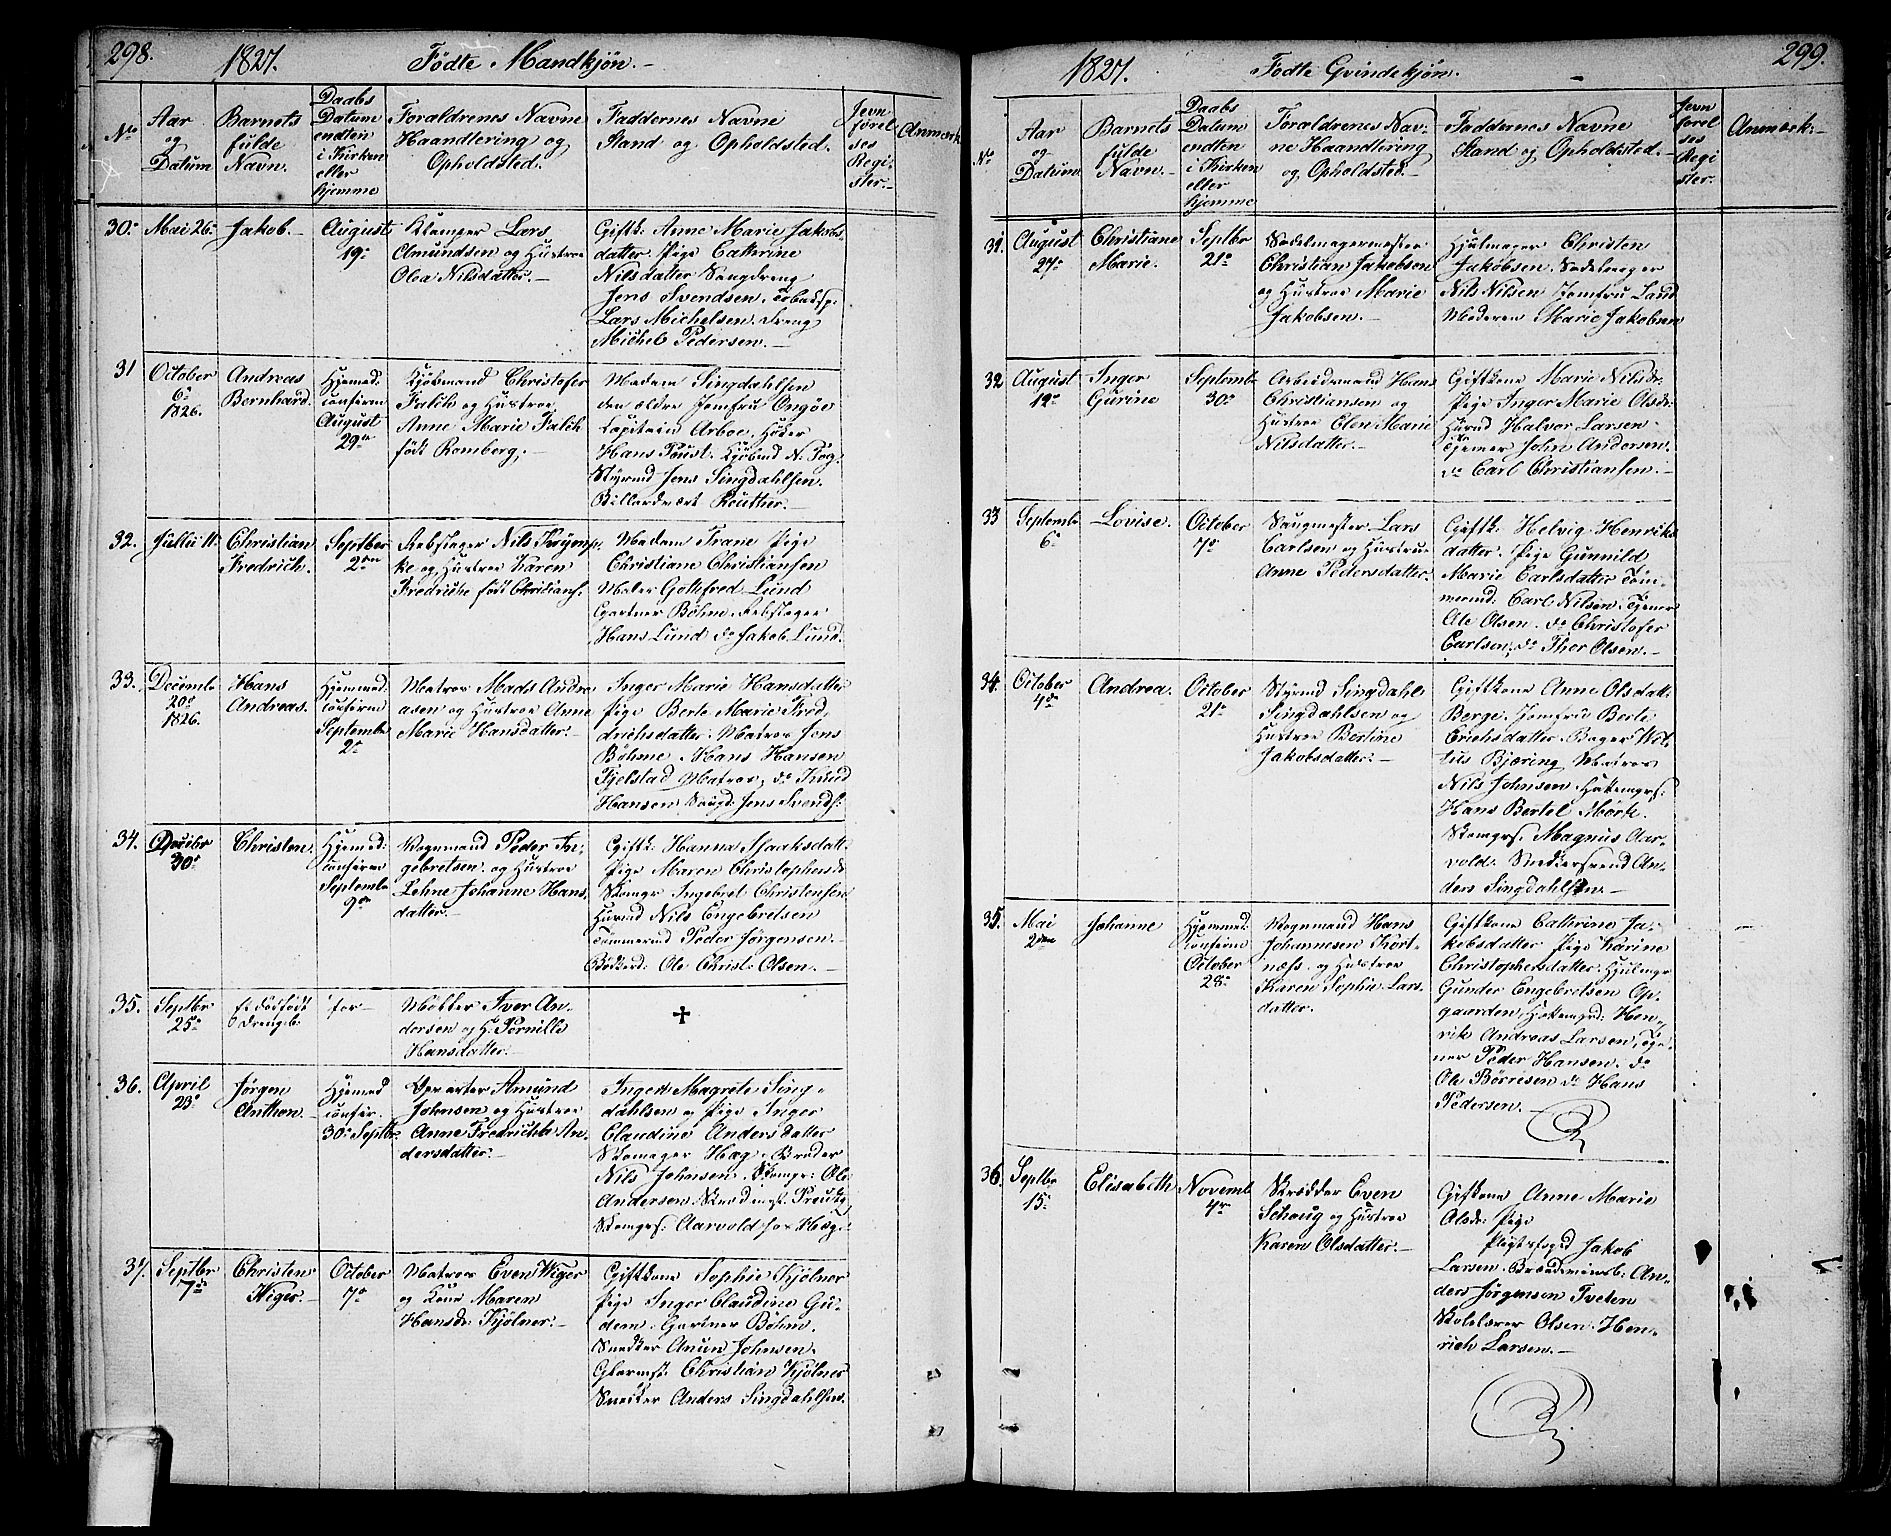 298.
1827.
Födte Mandkjön.
No
Aar
og
Datum
Barnets
fulde
Navn.
Daabs
Datum
endten
i Kirken
eller
hjemme
Foraldrenes Navne
Haandtering og
Opholdsted.
Faddernes Navne
Stand og Opholdsted.
Jevn
forel
ses
Regi
ster.
Anmærk
30.
Mai 26
Jakob.
August
19
Klemper Lars
Amundsen og Hustroe
Olea Nilsdatter.
Giftk. Anne Marie Jakobs
datter. Pige Cathrine
Nilsdatter
Jens Svendsen.
Lars Michelsen. Dreng
Michel Pedersen.
31
October
6
1826.
Andreas
Bernhard.
Hjemmed.
confirm
August
29
Kjöbmand Christofer
Falch og Hustroe
Anne Marie Falch
födt Romberg.
Madam Singdahlsen
den ældre Jomfru Ongöe
Capitain Arboe. Höker
Hans Poust. Kjöbmd N. Fog.
Styrmd Jens Singdahlsen.
Billardvært Reuther.
32.
Jullii 11
Christian
Fredrich.
Septber
2
Rebslager Nils
ke og Hustroe Karen
Fredriche födt Christians.
Madam Trane Pige
Christiane Christiansen
Maler Gottfred Lund
Gartner Böhme. Rebslager
Hans Lund do Jakob Lund.
33.
Decemb
20
1826.
Hans
Andreas.
Hjemmed.
confirm
Septembr
2
Matros Mads Andre
asen og Hustroe Anne
Marie Hansdatter.
Inger Marie Hansdatter
Pige Berte Marie Fred
drichsdatter. Matros Jens
Böhme. Hans Hansen
Fjelstad Matros, do Knud
Hansen Jens Svends.
34.
Decibr
30
Christen.
Hjemmed:
confirm
Septembr
9
Vognmand Peder In,
gebretsen. og Hustroe
Lehne Johanne Hans,
datter.
Giftk: Hanna Isaaksdatt.
Pige Maren Christophersd
Skomgr Ingebret Christensen
Huusmd Nils Engebretsen
Tömmermd Peder Jörgensen.
Bödkerd: Ole Christ: Olsen.
35.
Septbr
25
Et dödfödt
Drengeb.
for
Mötter Iver An,
dersen og H. Pernille
Hansdatter.
+
36.
April
23
Jörgen
Anthon.
Hjemmed
confir.
30 Septbr
Værarter Amund
Johnsen og Hustroe
Anne Fredrichke An,
dersdatter.
Inger Magrete Sing,
dahlsen Pige Inger
Claudine Andersdatter
Skomager Hæg.
Nils Johnsen. Skomgr: Ole
Andersen
Skomgrs: Aarvold for Hæg.
37.
Septbr
7
Christen
Wiger.
October
7
Matros Even Wiger
og Kone Maren
Hansdr Kjölner.
Giftkone Sophie Kjölner
Pige Inger Claudine Gu,
dem. Gartner Böhm.
Snedker Anun Johnsen.
Glarmst: Christian Kjölner
Snedker Anders Singdahlsen.
1827.
Födte Qvindekjön.
299.
No
Aar
og
Datum
Barnets
fulde
Navn.
Daabs
Datum
endten
i Kirken
eller
hjemme
Forældrenes Nav,
ne Haandtering
og Opholdsted.
Faddernes Navne
Stand og Opholdsted.
Jevn
forel
ses
Regi
ster.
Anmærk:
31.
August
27
Christiane
Marie.
Septbr
21
Sadelmagermester
Christian Jakobsen
og Hustroe Marie
Jakobsen.
Hjulmager Christen
Jakobsen. Sadelmager
Nils Nilsen Jomfru Lund
Moderen Marie Jakobsen
32
August
12
Inger
Gurine
Septemb
30
Arbeidsmand Hans
Christiansen og
Hustroe Elen Marie
Nilsdatter.
Giftkone Marie Nilsdr.
Pige Inger Marie Olsdr.
Huusmd Halvor Larsen
Tjener John Andersen.
do Carl Christiansen.
33
Septembr
6
Lovise.
October
7
Saugmester Lars
Carlsen og Hustrue
Anne Pedersdatter.
Giftk: Helvig Henriks
datter. Pige Gunnild
Marie Carlsdatter Töm,
mermd: Carl Nilsen. Tjener
Ole Olsen. do Christofer
Carlsen, do Thor Olsen.
34.
October
4
Andrea.
October
21
Styrmd Singdahl
Singdahlsen og
Hustroe Bertine
Jakobsdatter.
Giftkone Anne Olsdatt.
Berge. Jomfru Berte
Erichsdatter. Bager Wil,
lus Bjering Matros
Nils Johnsen.
Hans Bertel Mörk.
Skomgrs. Magnus Aar,
vold. Snedkersvend An,
ders Singdahlsen.
35.
Mai
2
Johanne
Hjemmed.
confirm
October
28
Vognmand Hans
Johannesen Kort,
næs. og Hustroe
Karen Sophie Lars,
datter.
Giftkone Cathrine Ja,
kobsdatter Pige Karine
Christophersdatter. Hjulmgr
Gunder Engebretsen Op,
gaarden, Hen,
rik Andreas Larsen, Tje,
ner Peder Hansen. do
Ole Börresen do Hans
Pedersen.
36.
Septbr
15
Elisabeth
Novemb
4
Skrædder Even
Schoug og Hustroe
Karen Olsdatter.
Giftkone Anne Marie
Olsdr. Pige
Pligtsfoged Jakob
Larsen. An,
ders Jörgensen Tveten
Skolelærer Olsen. Hen,
rich Larsen.